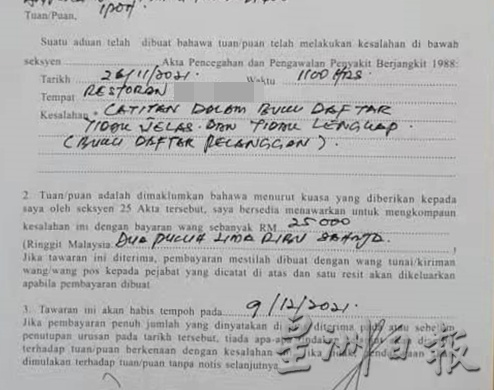 IPOH
Tuan/Puan,
Suatu aduan telah dibuat bahawa tuan/puan telah melakukan kesalahan di bawah
seksyen Akta Pencegahan dan Pengawalan Penyakit Berjangkit 1988:
Tarikh 26/11/2021. Waktu 1100 HRS.
Tempat RESTORAN
Kesalahan * CATITAN DALAM BUKU DAFTAR
TIDAK JELAS DAN TIDAK LENGKAP.
(BUKU DAFTAR PELANGGAN).
2. Tuan/puan adalah dimaklumkan bahawa menurut kuasa yang diberikan kepada
saya oleh seksyen 25 Akta tersebut, saya bersedia menawarkan untuk mengkompaun
kesalahan ini dengan bayaran wang sebanyak RM 25000
(Ringgit Malaysia DUA PULUH LIMA RIBU SAHAJA. )
Jika tawaran ini diterima, pembayaran mestilah dibuat dengan wang tunai/kiriman
wang/wang pos kepada pejabat yang dicatat di atas dan satu resit akan dikeluarkan
apabila pembayaran dibuat
3. Tawaran ini akan habis tempoh pada 9/12/2021.
Jika pembayaran penuh jumlah yang dinyatakan di diterima pada atau sebelum
penutupan urusan pada tarikh tersebut, tiada apa-apa
terhadap tuan/puan berkenaan dengan kesalahan
dimulakan terhadap tuan/puan tanpa notis selanjutnya.
星洲日報